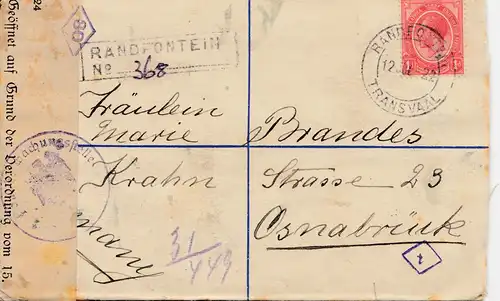 24
Geöffnet auf Grund der Verordnung vom 15.
80
RANDFONTEIN
No 368
RANDFONTEIN
12 22
TRANSVAAL
Fräulein
Marie Brandes
Krahn Strasse 23
Osnabrück
many
31/449
t